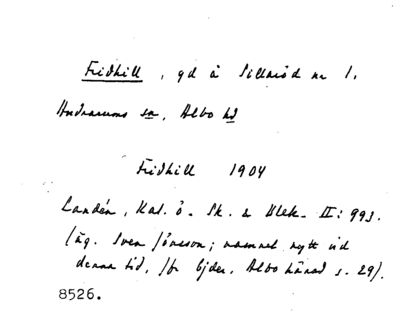 Fridhill, gd å Sillaröd nr 1,
Andrarums sn, Albo hd
Fridhill 1904
Landén, Kat. ö. Sk. & Blek. II: 993.
(äg. Sven Jönsson; namnet nytt vid
denna tid, jfr Gjder, Albo härad s. 29).
8526.